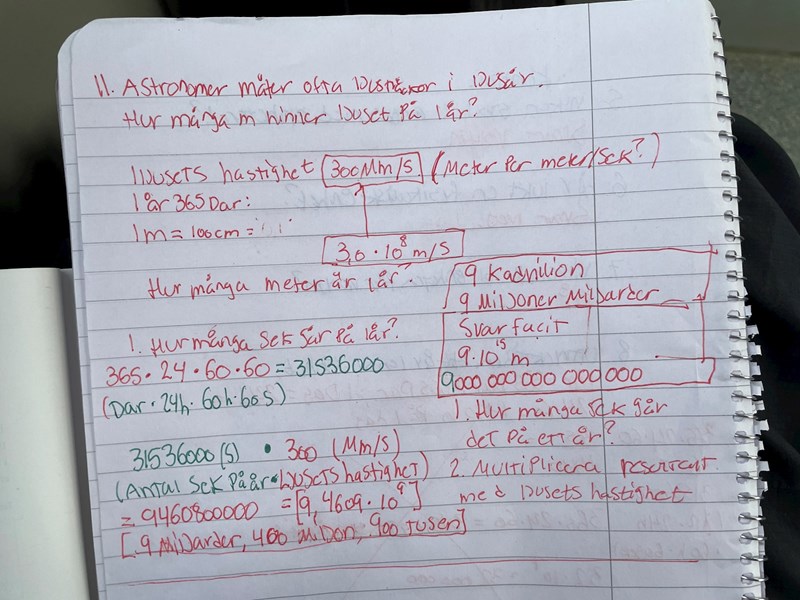 11. Astronomer mäter ofta ljussträckor i ljusår.
Hur många m hinner ljuset på 1 år?
Ljusets hastighet 300Mm/s (Meter per meter/sek?)
1 år 365 Dar:
1m = 100cm =
3,0 · 10⁸ m/s
Hur många meter är 1 år?
9 Kadrilion
9 Miljoner Miljarder
1. Hur många sek går på 1 år?
365 · 24 · 60 · 60 = 31536000
(Dar · 24h · 60h · 60s)
Svar facit
9 · 10¹⁵ m
9000 000 000 000 000
1. Hur många sek går
det på ett år?
2. Multiplicera
med ljusets hastighet
31536000 (s) · 300 (Mm/s)
(Antal sek på år · Ljusets hastighet)
= 9460800000 = [9,4609 · 10⁹]
[9 Miljarder, 460 miljon, 900 tusen]